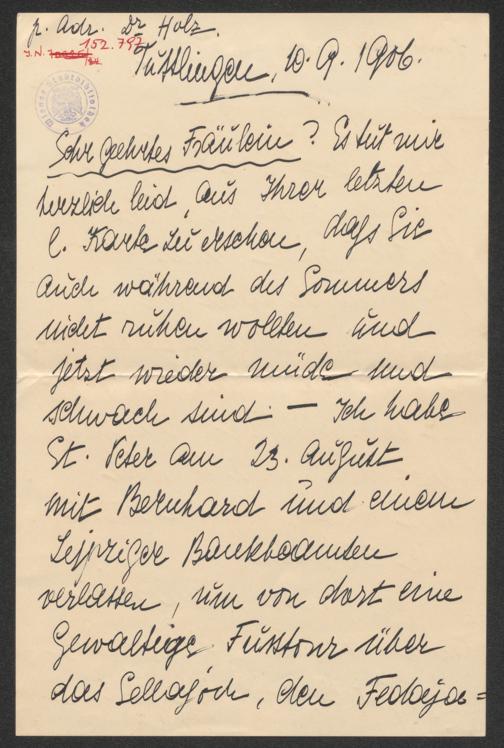 p. Adr. Dr Holz.
I.N. 152.797
Wiener Stadtbibliothek
Tuttlingen, 10. 9. 1906.
Sehr geehrtes Fräulein! Es tut mir
herzlich leid, aus Ihrer letzten
l. Karte zu ersehen, dass Sie
auch während des Sommers
nicht ruhen wollten und
jetzt wieder müde und
schwach sind. — Ich habe
St. Peter am 23. August
mit Bernhard und einem
Leipziger Bankbeamten
verlassen, um von dort eine
gewaltige Fusstour über
das Sellajoch, den Fedaja=